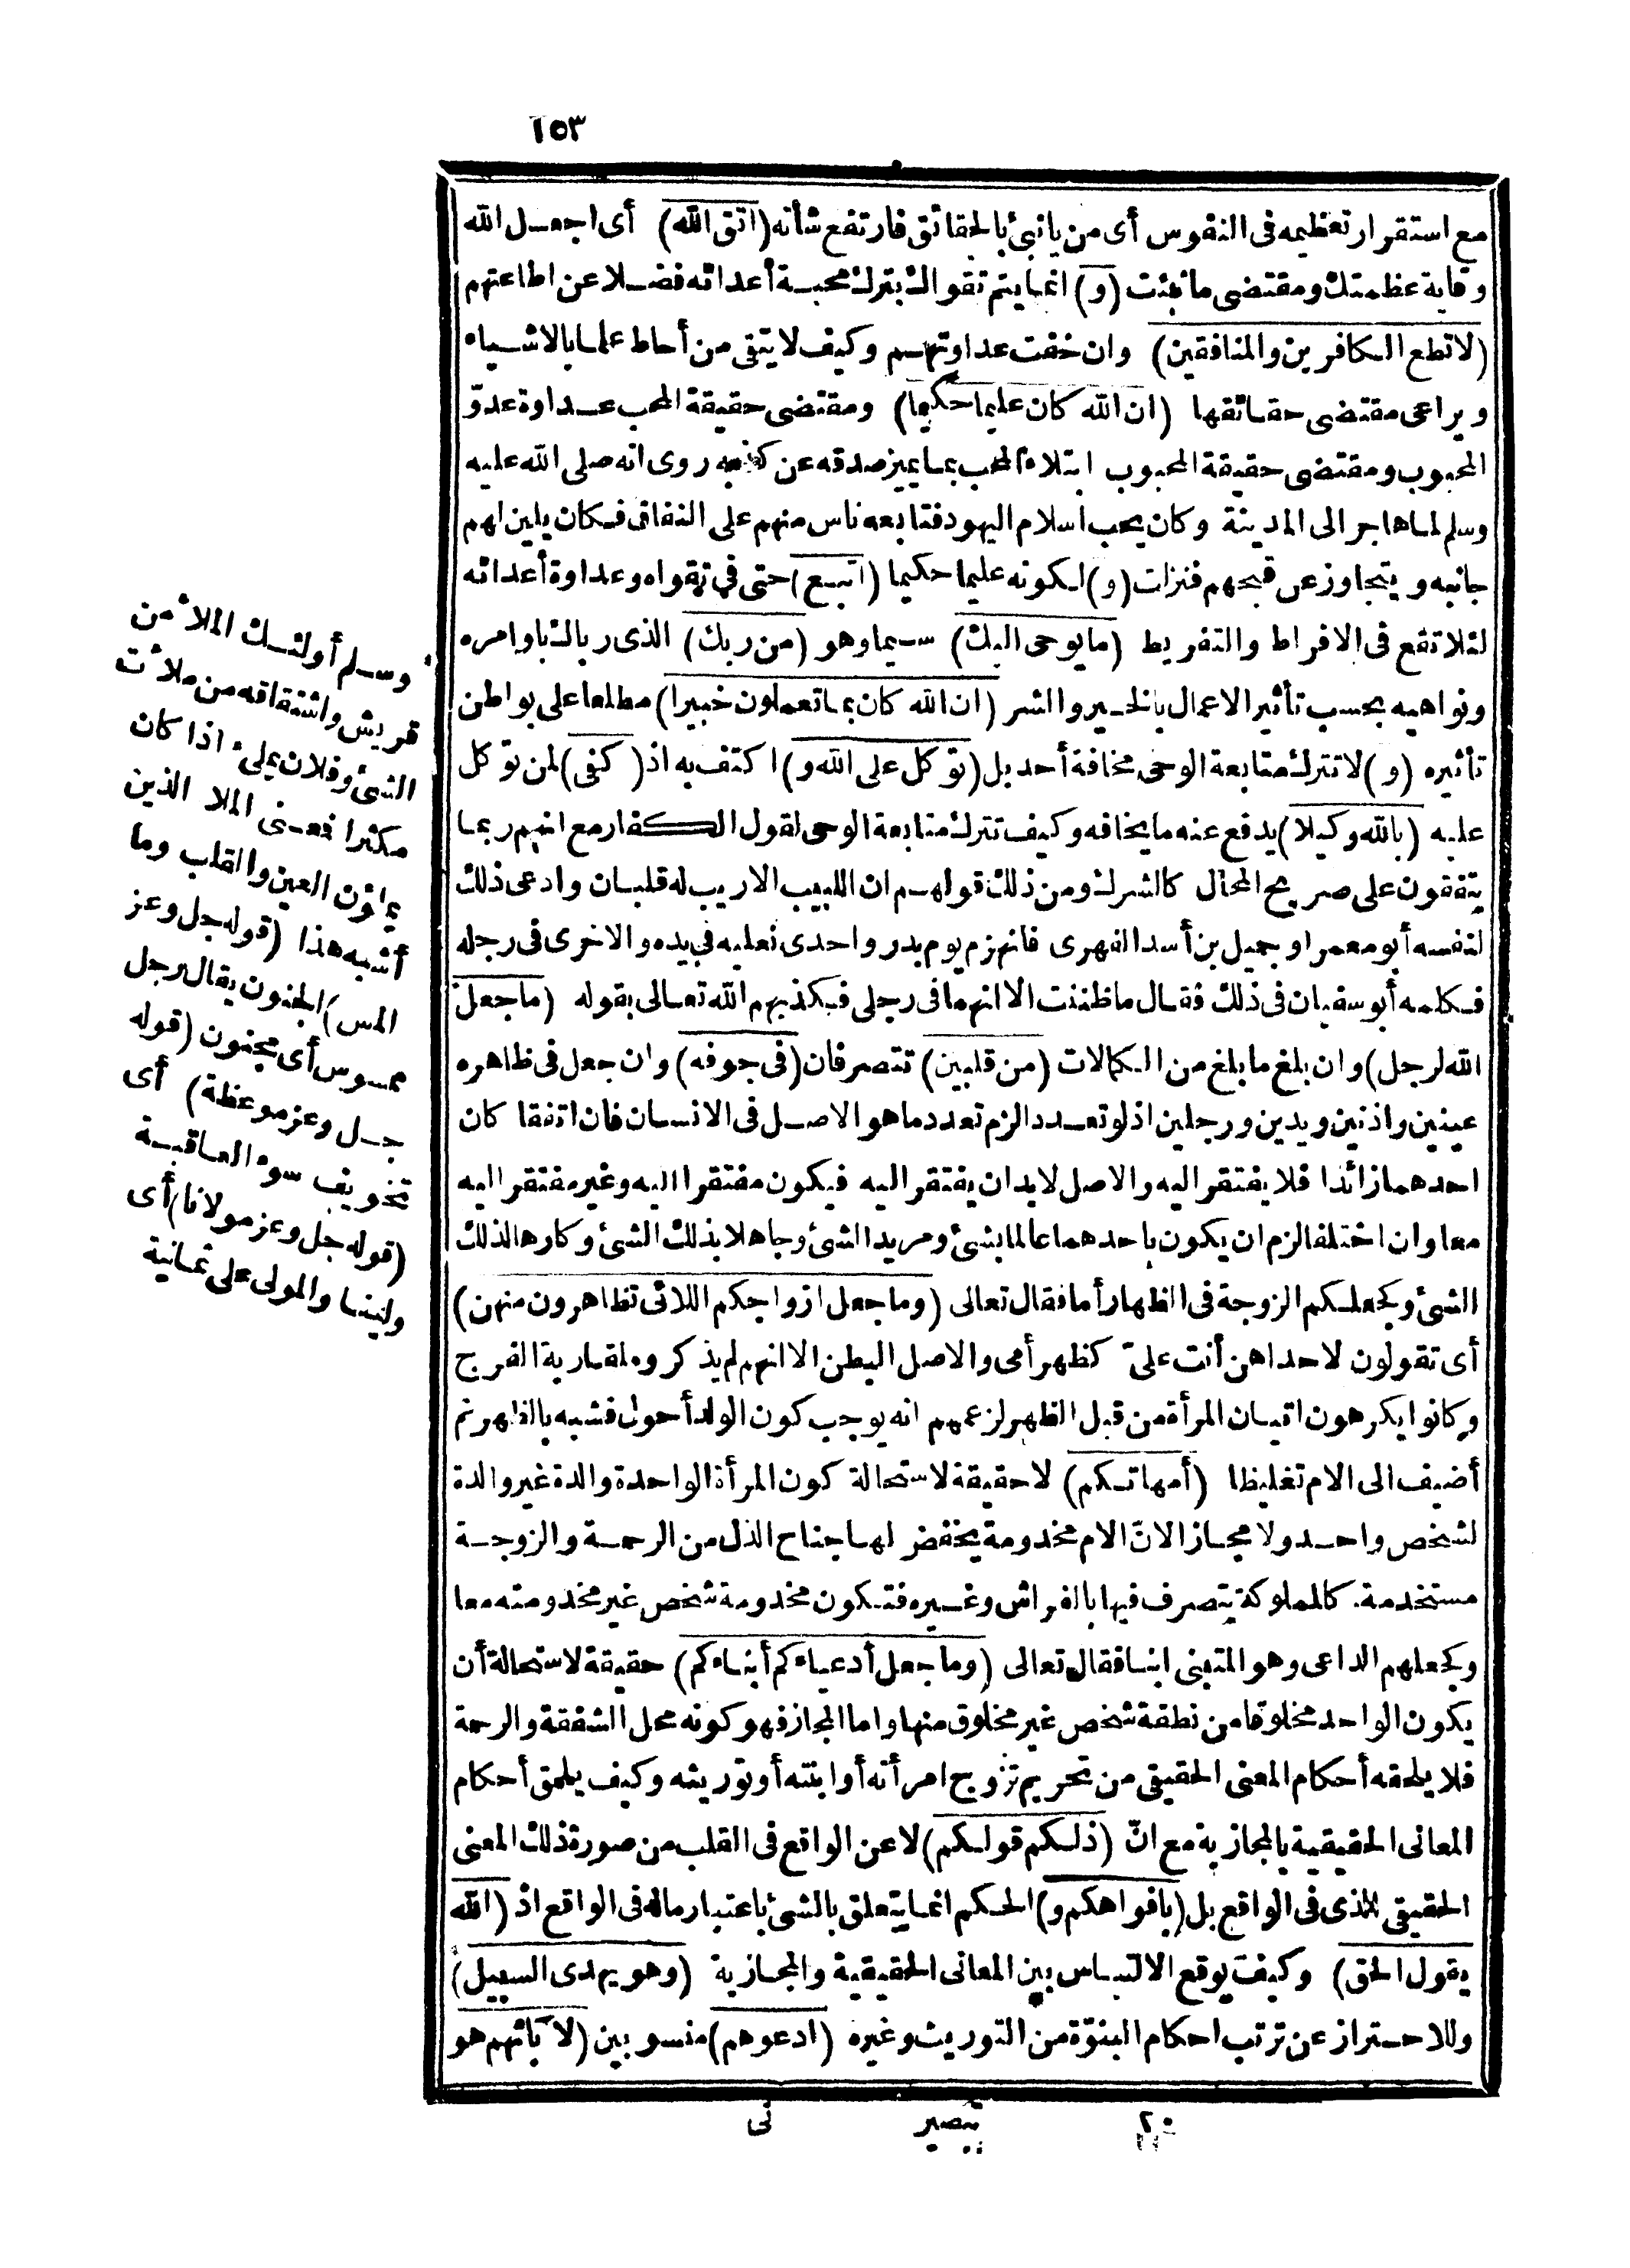 ١٥٣
مع استقرار تعظيمه فى النفوس أى من يا نبئ بالحقائق فارتفع شأنه (اتق الله) أى اجعل الله
وقاية عظمتك ومقتضى ما نبئت (و) انما يتم تقواك بترك محبة أعدائه فضلا عن اطاعتهم
(لا تطع الكافرين والمنافقين) وان خفت عداوتهم وكيف لا يتقى من أحاط علما بالاشياء
ويراعى مقتضى حقائقها (ان الله كان عليما حكيما) ومقتضى حقيقة المحب عداوة عدوّ
المحبوب ومقتضى حقيقة المحبوب ابتلاء المحب بما يميز صدقه عن كذبه روى انه صلى الله عليه
وسلم لما هاجر الى المدينة وكان يحب اسلام اليهود فتابعه ناس منهم على النفاق فكان يلين لهم
جانبه ويتجاوز عن قبحهم فنزلت (و) لكونه عليما حكيما (اتبع) حتى فى تقواه وعداوة أعدائه
لئلا تقع فى الافراط والتفريط (ما يوحى اليك) سيما وهو (من ربك) الذى رباك باوامره
ونواهيه بحسب تأثير الاعمال بالخير والشر (ان الله كان بما تعملون خبيرا) مطلعا على بواطن
تأثيره (و) لا تترك متابعة الوحى مخافة أحد بل (توكل على الله و) اكتف به اذ (كفى) لمن توكل
عليه (بالله وكيلا) يدفع عنه ما يخافه وكيف تترك متابعة الوحى لقول الكفار مع انهم ربما
يتفقون على صريح المحال كالشرك ومن ذلك قولهم ان اللبيب الاريب له قلبان وادعى ذلك
لنفسه أبو معمر او جميل بن أسد الفهرى فانهزم يوم بدر واحدى نعليه فى يده والاخرى فى رجله
فكلمه أبو سفيان فى ذلك فقال ما ظننت الا انهما فى رجلى فكذبهم الله تعالى بقوله (ما جعل
الله لرجل) وان بلغ ما بلغ من الكمالات (من قلبين) تتصرفان (فى جوفه) وان جعل فى ظاهره
عينين واذنين ويدين ورجلين اذ لو تعدد الزم تعدد ما هو الاصل فى الانسان فان اتفقا كان
احدهما زائدا فلا يفتقر اليه والاصل لابد ان يفتقر اليه فيكون مفتقرا اليه وغير مفتقر اليه
معا وان اختلفا لزم ان يكون باحدهما عالما بشئ ومريدا لشئ وجاهلا بذلك الشئ وكارها لذلك
الشئ وكجعلكم الزوجة فى الظهار أما فقال تعالى (وما جعل ازواجكم اللائى تظاهرون منهن)
أى تقولون لاحداهن أنت علىّ كظهر أمى والاصل البطن الا انهم لم يذكروه لمقاربة الفرج
وكانوا يكرهون اتيان المرأة من قبل الظهر لزعمهم انه يوجب كون الولد أحول فشبه بالظهر ثم
أضيف الى الام تغليظا (أمهاتكم) لا حقيقة لاستحالة كون المرأة الواحدة والدة غير والدة
لشخص واحد ولا مجازا لانّ الام مخدومة يخفض لها جناح الذل من الرحمة والزوجة
مستخدمة كالمملوكة يتصرف فيها بالفراش وغيره فتكون مخدومة شخص غير مخدومته معا
وكجعلهم الداعى وهو المتبنى ابنا فقال تعالى (وما جعل أدعياءكم أبناءكم) حقيقة لاستحالة أن
يكون الواحد مخلوقا من نطفة شخص غير مخلوق منها واما المجاز فهو كونه محل الشفقة والرحمة
فلا يلحقه أحكام المعنى الحقيقى من تحريم تزوج امرأته أو ابنته أو توريثه وكيف يلحق أحكام
المعانى الحقيقية بالمجازية مع انّ (ذلكم قولكم) لا عن الواقع فى القلب من صورة ذلك المعنى
الحقيقى للذى فى الواقع بل (بافواهكم و) الحكم انما يتعلق بالشئ باعتبار ماله فى الواقع اذ (الله
يقول الحق) وكيف يوقع الالتباس بين المعانى الحقيقية والمجازية (وهو يهدى السبيل)
وللاحتراز عن ترتب احكام البنوّة من التوريث وغيره (ادعوهم) منسوبين (لآبائهم هو
٢٠ تبصير نى
وسلم أولئك الملا من
قريش واشتقاقه من ملأت
الشئ وفلان ملئ اذا كان
مكثرا فمعنى الملا الذين
يملؤن العين والقلب وما
أشبه هذا (قوله جل وعز
المس) الجنون يقال رجل
ممسوس أى مجنون (قوله
جل وعز موعظة) أى
تخويف سوء العاقبة
(قوله جل وعز مولانا) أى
ولينا والمولى على ثمانية